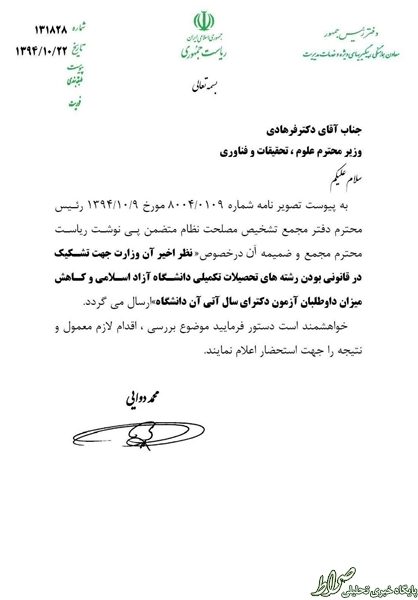 دفتر رئیس جمهور
جمهوری اسلامی ایران
ریاست جمهوری
شماره ۱۳۱۸۲۸
تاریخ ۱۳۹۴/۱۰/۲۲
پیوست
طبقه‌بندی
فوریت
بسمه تعالی
جناب آقای دکترفرهادی
وزیر محترم علوم ، تحقیقات و فناوری
سلام علیکم
به پیوست تصویر نامه شماره ۸۰۰۴/۰۱۰۹ مورخ ۱۳۹۴/۱۰/۹ رئیس
محترم دفتر مجمع تشخیص مصلحت نظام متضمن پی نوشت ریاست
محترم مجمع و ضمیمه آن درخصوص«نظر اخیر آن وزارت جهت تشکیک
در قانونی بودن رشته های تحصیلات تکمیلی دانشگاه آزاد اسلامی و کاهش
میزان داوطلبان آزمون دکترای سال آتی آن دانشگاه»ارسال می گردد.
خواهشمند است دستور فرمایید موضوع بررسی ، اقدام لازم معمول و
نتیجه را جهت استحضار اعلام نمایند.
محمد دوایی
صراط
پایگاه خبری تحلیلی